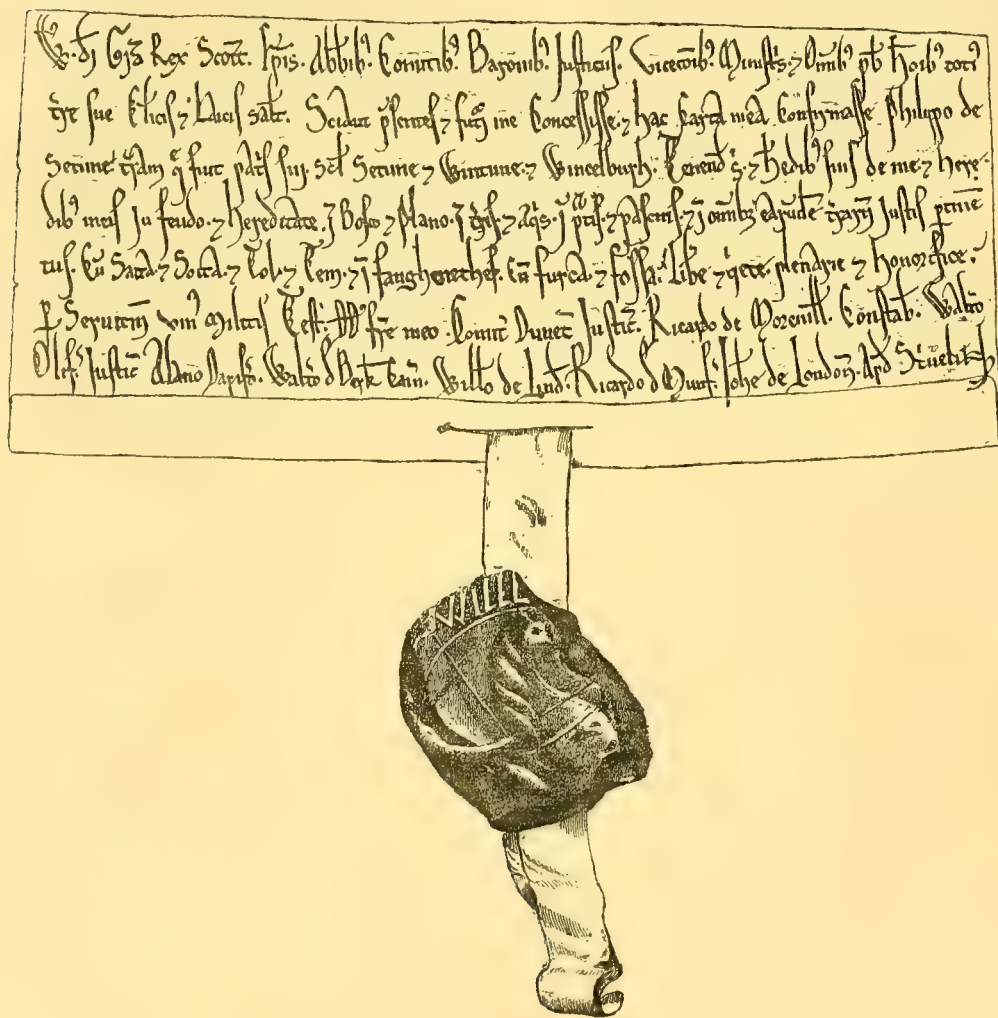 W. dī Gr̄a Rex Scott. Ep̄is. Abb̄ib⁹. Comitib⁹. Baronib⁹. Justiciis. Vicecōib⁹. Ministr̄s. ⁊ Om̄ib⁹ p̄b h̄oib⁹ toti⁹
t̄re sue Cl̄icis ⁊ Laicis sal̄t. Sciant p̄sentes ⁊ fut̄i me Concessisse. ⁊ hac Carta mea Confirmasse Philippo de
Setune. t̄ram q̄ fuit pat̄s sui. sc̄l Setune ⁊ Wintune. ⁊ Wincelburh. Tenend̄ s̄. ⁊ h̄edib⁹ suis de me. ⁊ here-
dib⁹ meis In feudo. ⁊ hereditate. ī Bosco ⁊ Plano. ī t̄ris. ⁊ Aq̄s. ī p̄tis. ⁊ pascuis. ⁊ ī omib⁊ earūdē t̄rarū Justis p̄tinē
tiis. Cū Sacca. ⁊ Socca. ⁊ Tol. ⁊ Tem. ⁊ ī fanghenethef. Cū furca. ⁊ fossa. Lib̄e ⁊ q̄ete. plenarie ⁊ honorifice.
P̄ Servitiū uni⁹ Militis Test. fr̄e meo. Comit̄ Dunec̄ Justic̄. Ricardo de Morevill̄. Constab̄. Walt̄o
Olif̄. Justic̄ Alano Dapif̄o. Walt̄o d̄ Berk̄. Cam̄. Will̄o de Lind̄. Ricardo d̄ Munf̄. Joh̄e de London̄. Ap̄d Striuelin
WILL